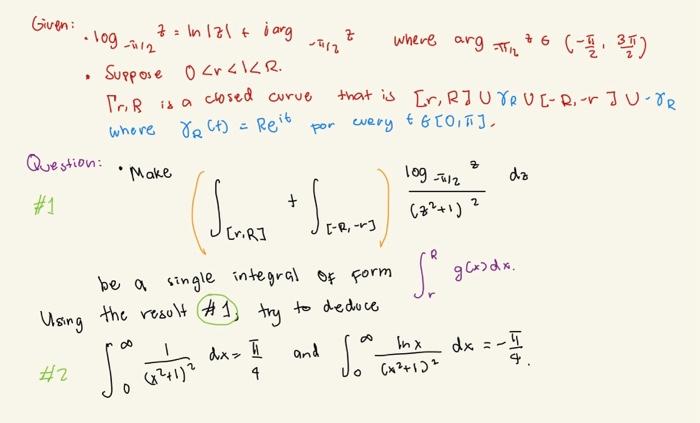 Given: • log_{-π/2} z = ln |z| + i arg_{-π/2} z where arg_{-π/2} z ∈ (-π/2, 3π/2)
• Suppose 0 < r < 1 < R.
Γr,R is a closed curve that is [r, R] ∪ γR ∪ [-R, -r] ∪ -γR
where γR(t) = Re^{it} for every t ∈ [0, π].
Question: • Make
#1 ( ∫_{[r,R]} + ∫_{[-R,-r]} ) log_{-π/2} z / (z²+1)² dz
be a single integral of form ∫_r^R g(x)dx.
Using the result #1, try to deduce
#2 ∫_0^∞ 1/(x²+1)² dx = π/4 and ∫_0^∞ ln x/(x²+1)² dx = -π/4.